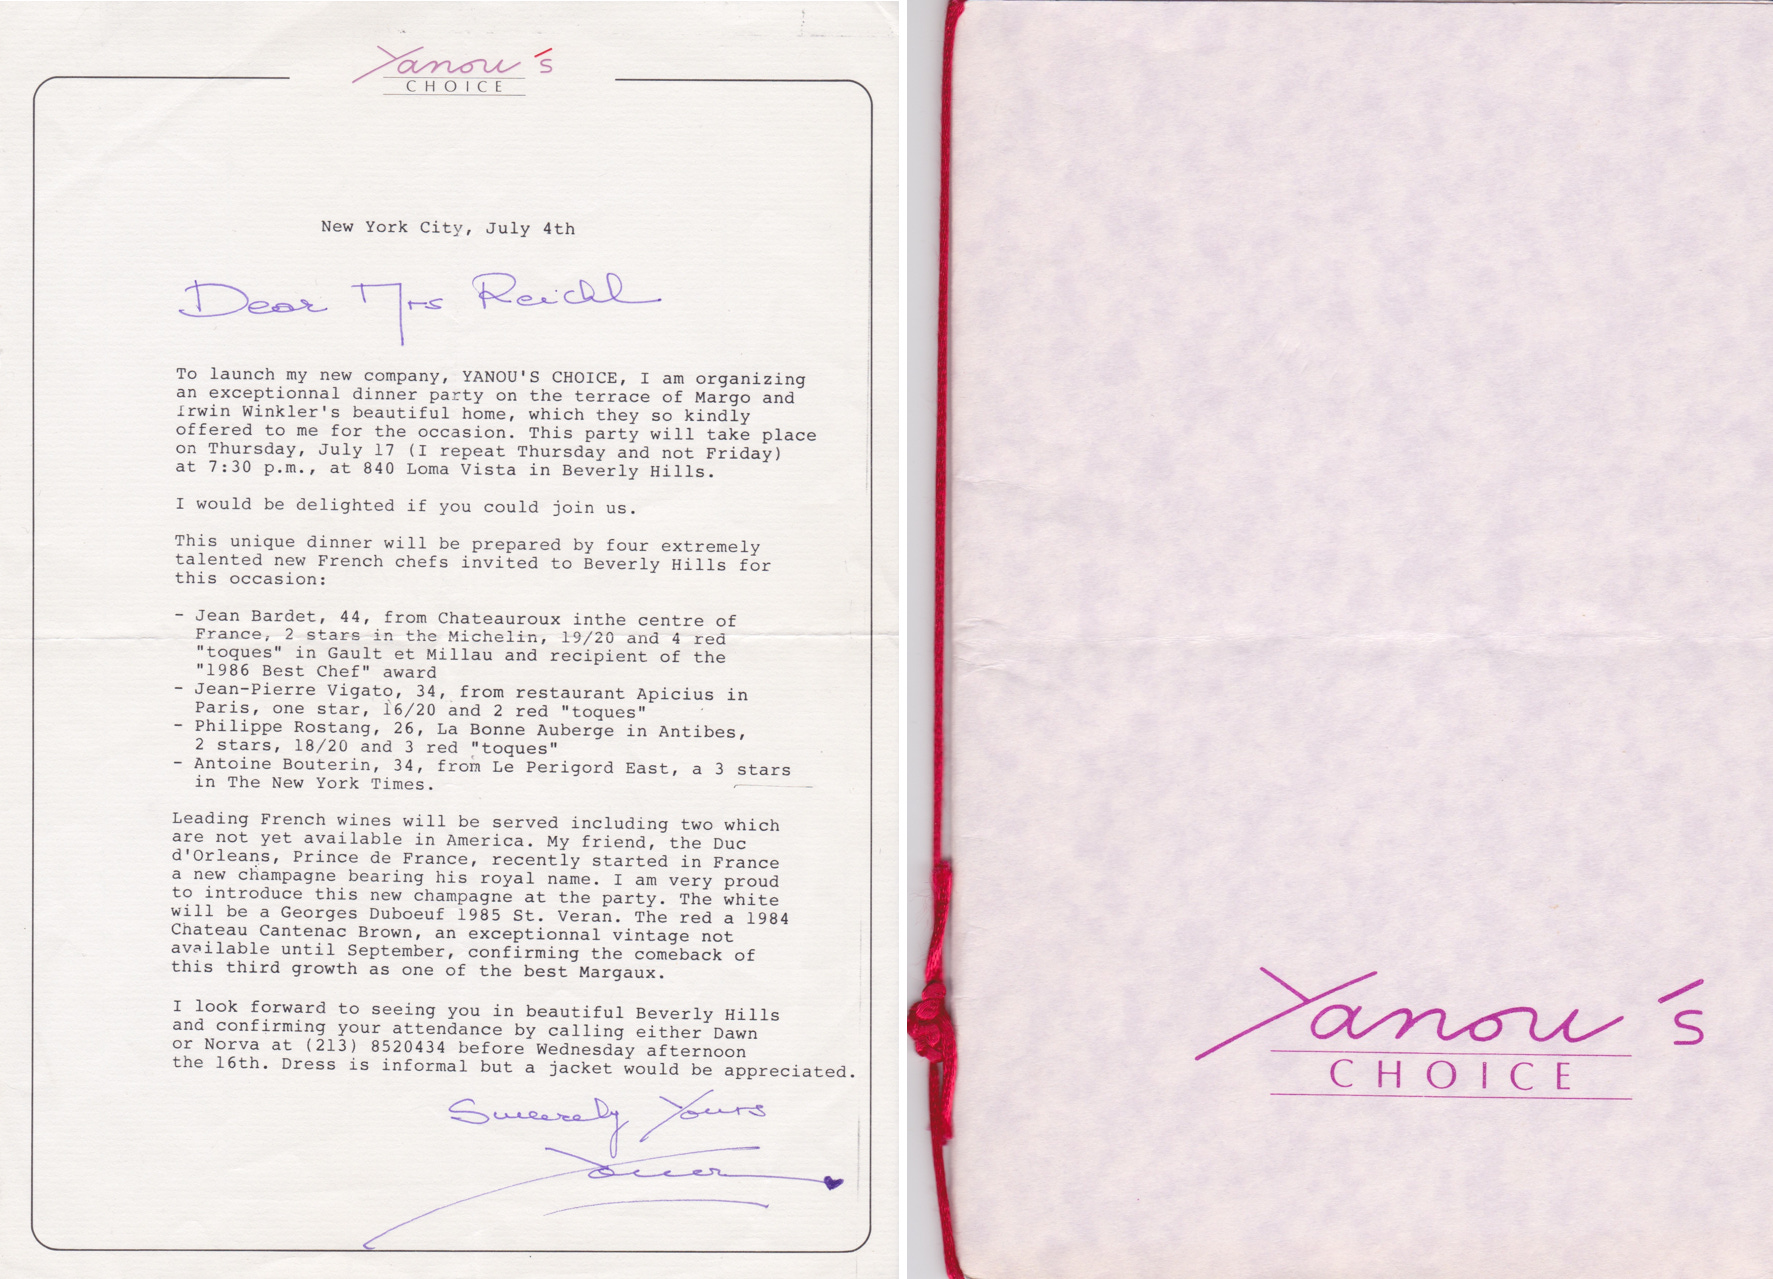 Yanou's
CHOICE
New York City, July 4th
Dear Mrs Reichl
To launch my new company, YANOU'S CHOICE, I am organizing
an exceptionnal dinner party on the terrace of Margo and
Irwin Winkler's beautiful home, which they so kindly
offered to me for the occasion. This party will take place
on Thursday, July 17 (I repeat Thursday and not Friday)
at 7:30 p.m., at 840 Loma Vista in Beverly Hills.
I would be delighted if you could join us.
This unique dinner will be prepared by four extremely
talented new French chefs invited to Beverly Hills for
this occasion:
- Jean Bardet, 44, from Chateauroux inthe centre of
France, 2 stars in the Michelin, 19/20 and 4 red
"toques" in Gault et Millau and recipient of the
"1986 Best Chef" award
- Jean-Pierre Vigato, 34, from restaurant Apicius in
Paris, one star, 16/20 and 2 red "toques"
- Philippe Rostang, 26, La Bonne Auberge in Antibes,
2 stars, 18/20 and 3 red "toques"
- Antoine Bouterin, 34, from Le Perigord East, a 3 stars
in The New York Times.
Leading French wines will be served including two which
are not yet available in America. My friend, the Duc
d'Orleans, Prince de France, recently started in France
a new champagne bearing his royal name. I am very proud
to introduce this new champagne at the party. The white
will be a Georges Duboeuf 1985 St. Veran. The red a 1984
Chateau Cantenac Brown, an exceptionnal vintage not
available until September, confirming the comeback of
this third growth as one of the best Margaux.
I look forward to seeing you in beautiful Beverly Hills
and confirming your attendance by calling either Dawn
or Norva at (213) 8520434 before Wednesday afternoon
the 16th. Dress is informal but a jacket would be appreciated.
Sincerely Yours
Yanou
Yanou's
CHOICE